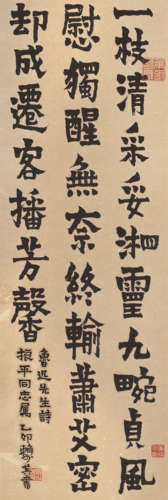 一枝清采妥湘靈九畹貞風
慰獨醒無奈終輸蕭艾密
却成遷客播芳馨
魯迅先生詩
振平同志属 乙卯